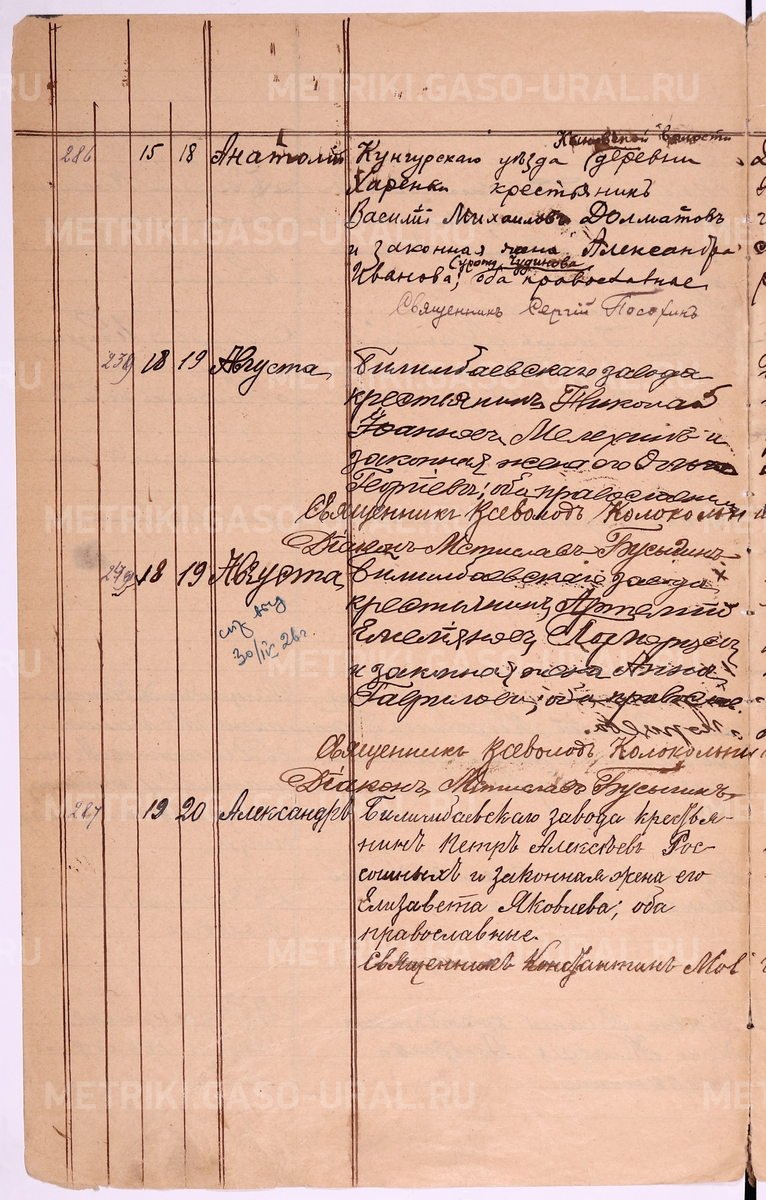 METRIKI.GASO-URAL.RU
286 15 18 Анатолий Кунгурскаго уѣзда деревни
волости
Харенки крестьянинъ
Василій Михаиловъ Долматовъ
и законная жена Александра
Чудинова
Иванова; оба православные
Священникъ Сергій
239 18 19 Августа Билимбаевскаго завода
крестьянинъ Николай
Іоанновъ Мелехинъ и
законная жена его
Георгіева; оба православные
Священникъ Всеволодъ Колокольн
Діаконъ Мстиславъ Бусыгинъ
18 19 Августа Билимбаевскаго завода
крестьянинъ Артемій
Емельяновъ
30/IV 26 г.
и законная жена Анна
Гаврилова; оба правосл.
Священникъ Всеволодъ Колокольни
Діаконъ Мстиславъ Бусыгинъ
287 19 20 Александръ Билимбаевскаго завода крестья-
нинъ Петръ Алексѣевъ Рос-
сошныхъ и законная жена его
Елизавета Яковлева; оба
православные
Священникъ Константинъ